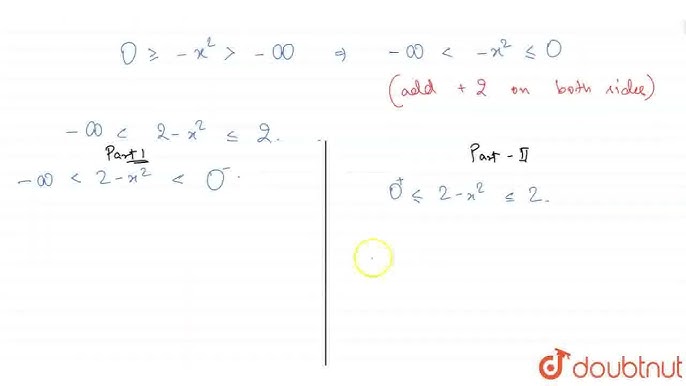 0 ≥ -x² > -∞ ⇒ -∞ < -x² ≤ 0
(add +2 on both sides)
-∞ < 2-x² ≤ 2.
Part 1
-∞ < 2-x² < 0⁻.
Part - II
0⁺ ≤ 2-x² ≤ 2.
doubtnut